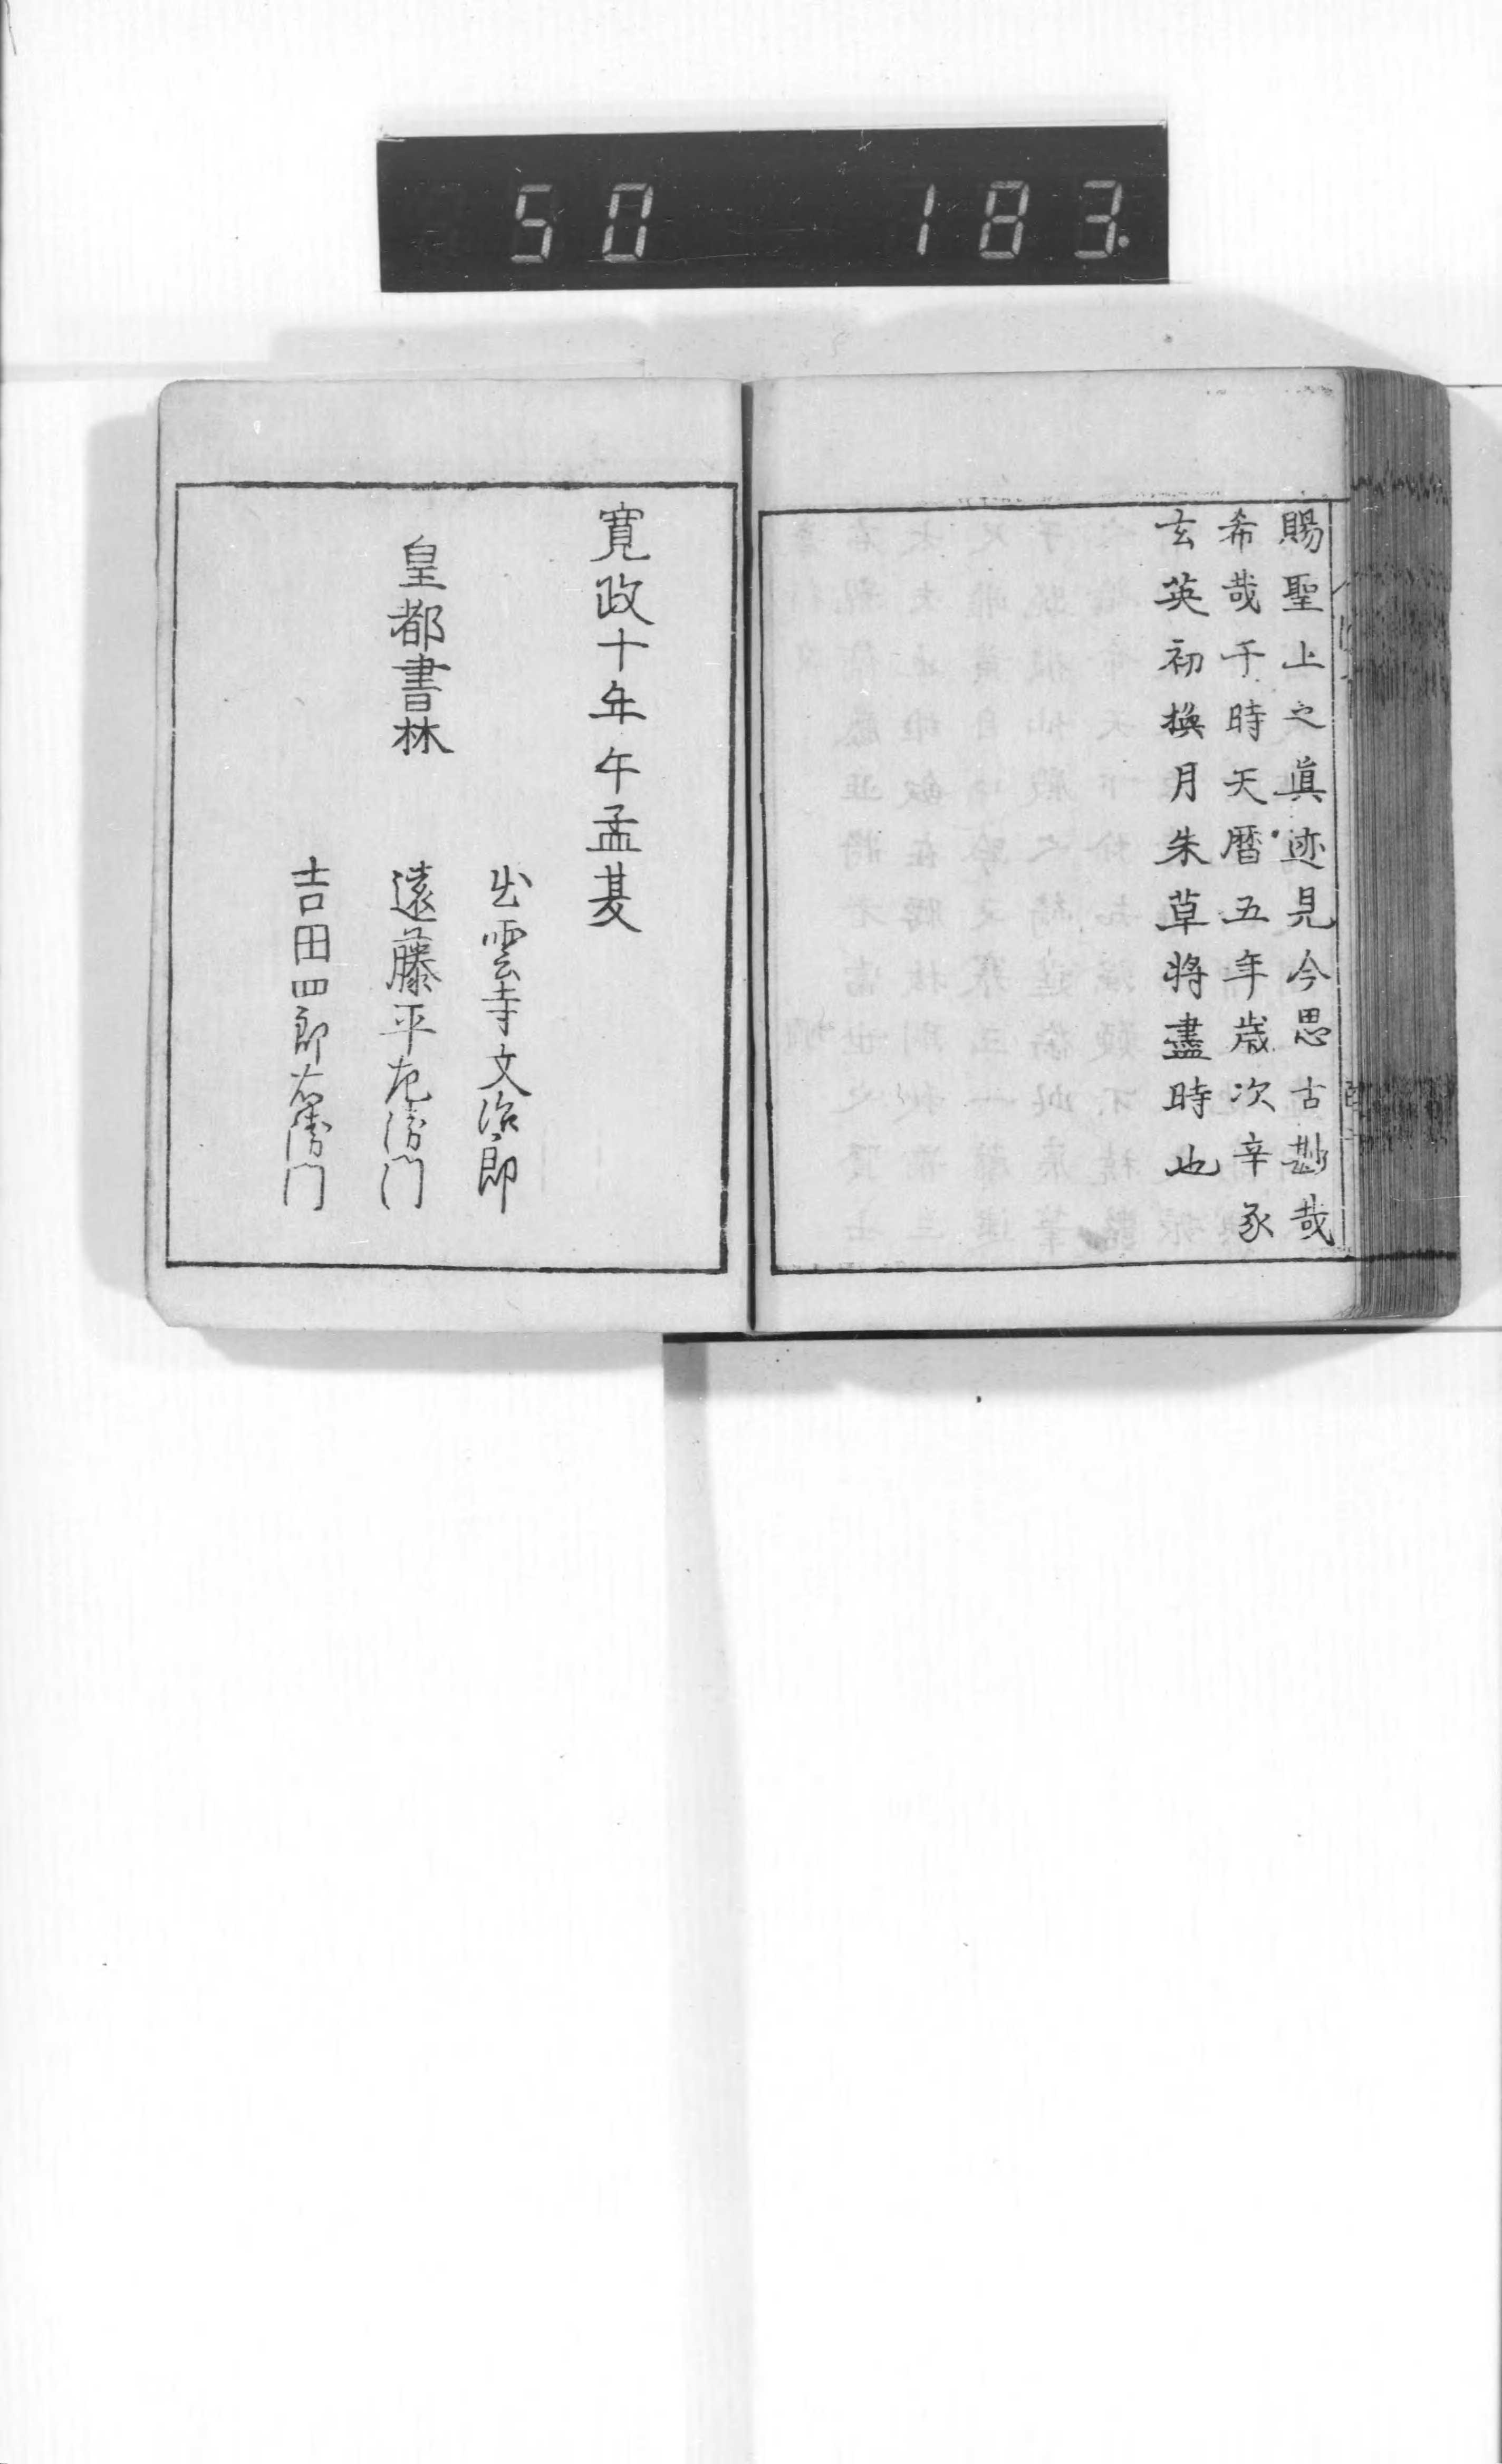 50 183.
賜聖上之眞迹見今思古尠哉
希哉于時天暦五年歳次辛亥
玄英初換月朱草将盡時也
寛政十年午孟夏
皇都書林
出雲寺文治郎
遠藤平左衛門
吉田四郎右衛門